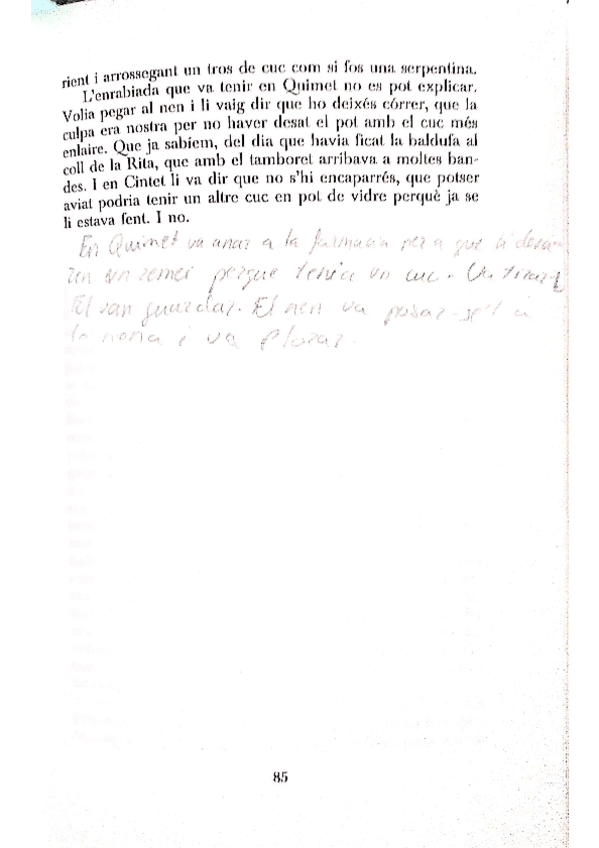 rient i arrossegant un tros de cuc com si fos una serpentina.
L'enrabiada que va tenir en Quimet no es pot explicar.
Volia pegar al nen i li vaig dir que ho deixés córrer, que la
culpa era nostra per no haver desat el pot amb el cuc més
enlaire. Que ja sabíem, del dia que havia ficat la baldufa al
coll de la Rita, que amb el tamboret arribava a moltes ban-
des. I en Cintet li va dir que no s'hi encaparrés, que potser
aviat podria tenir un altre cuc en pot de vidre perquè ja se
li estava fent. I no.
En Quimet va anar a la farmacia per a que li dona-
ren un remei perque tenia un cuc. Va tirar-l
El van guardar. El nen va posar-se'l a
la nona i va plorar.
85